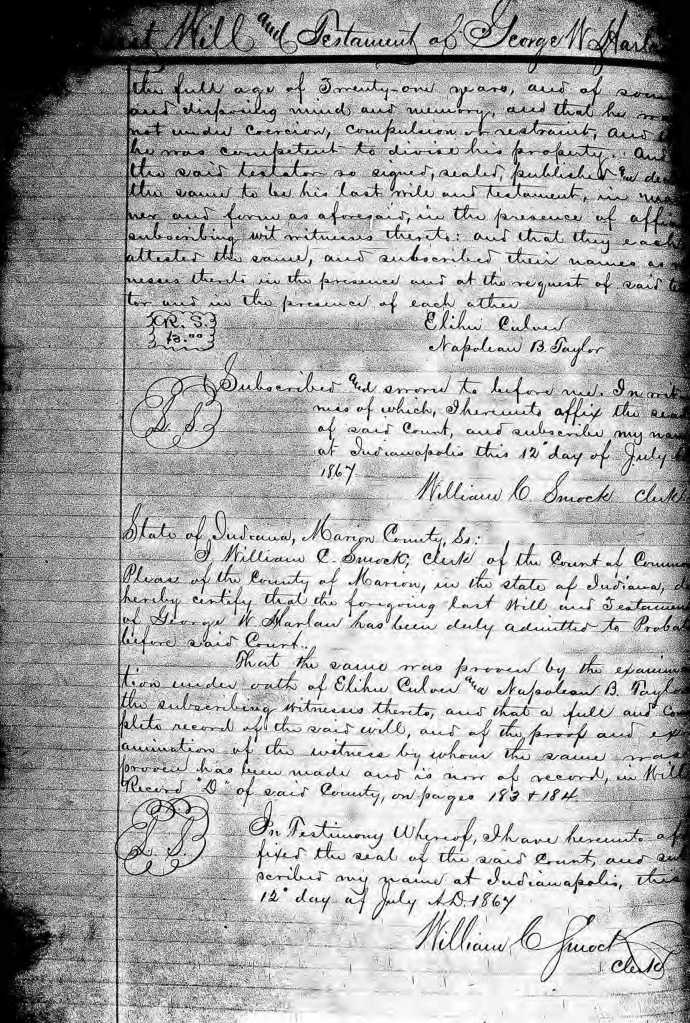 Last Will and Testament of George W Harla
the full age of Twenty-one years, and of soun
and disposing mind and memory, and that he wa
not under coercion, compulsion or restraint, and
he was competent to divise his property. And
the said testator so signed, sealed, published and de
the same to be his last will and testament, in man
ner and form as aforesaid, in the presence of affia
subscribing wit witnesses thereto: and that they each
attested the same, and subscribed their names as
nesses thereto in the presence and at the request of said te
tor and in the presence of each other
(R. S.
Elihu Culver
Napolean B. Taylor
L. S.
Subscribed and sworn to before me. In wit
ness of which, I hereunto affix the seal
of said Court, and subscribe my name
at Indianapolis this 12" day of July
1867
William C. Smock clerk
State of Indiana, Marion County, Ss:
I, William C. Smock, clerk of the Court of Common
Pleas of the County of Marion, in the state of Indiana, d
hereby certify that the foregoing last Will and Testament
of George W Harlan has been duly admitted to Probat
before said Court.
That the same was proven by the examin
tion under oath of Elihu Culver and Napolean B. Taylo
the subscribing witnesses thereto, and that a full and com
plete record of the said will, and of the proof and ex
amination of the witness by whom the same was
proven has been made and is now of record, in Will
Record "D" of said County, on pages 183 & 184.
L. S.
In Testimony Whereof, I have hereunto af
fixed the seal of the said Court, and sub
scribed my name at Indianapolis, this
12" day of July A.D. 1867
William C Smock
clerk